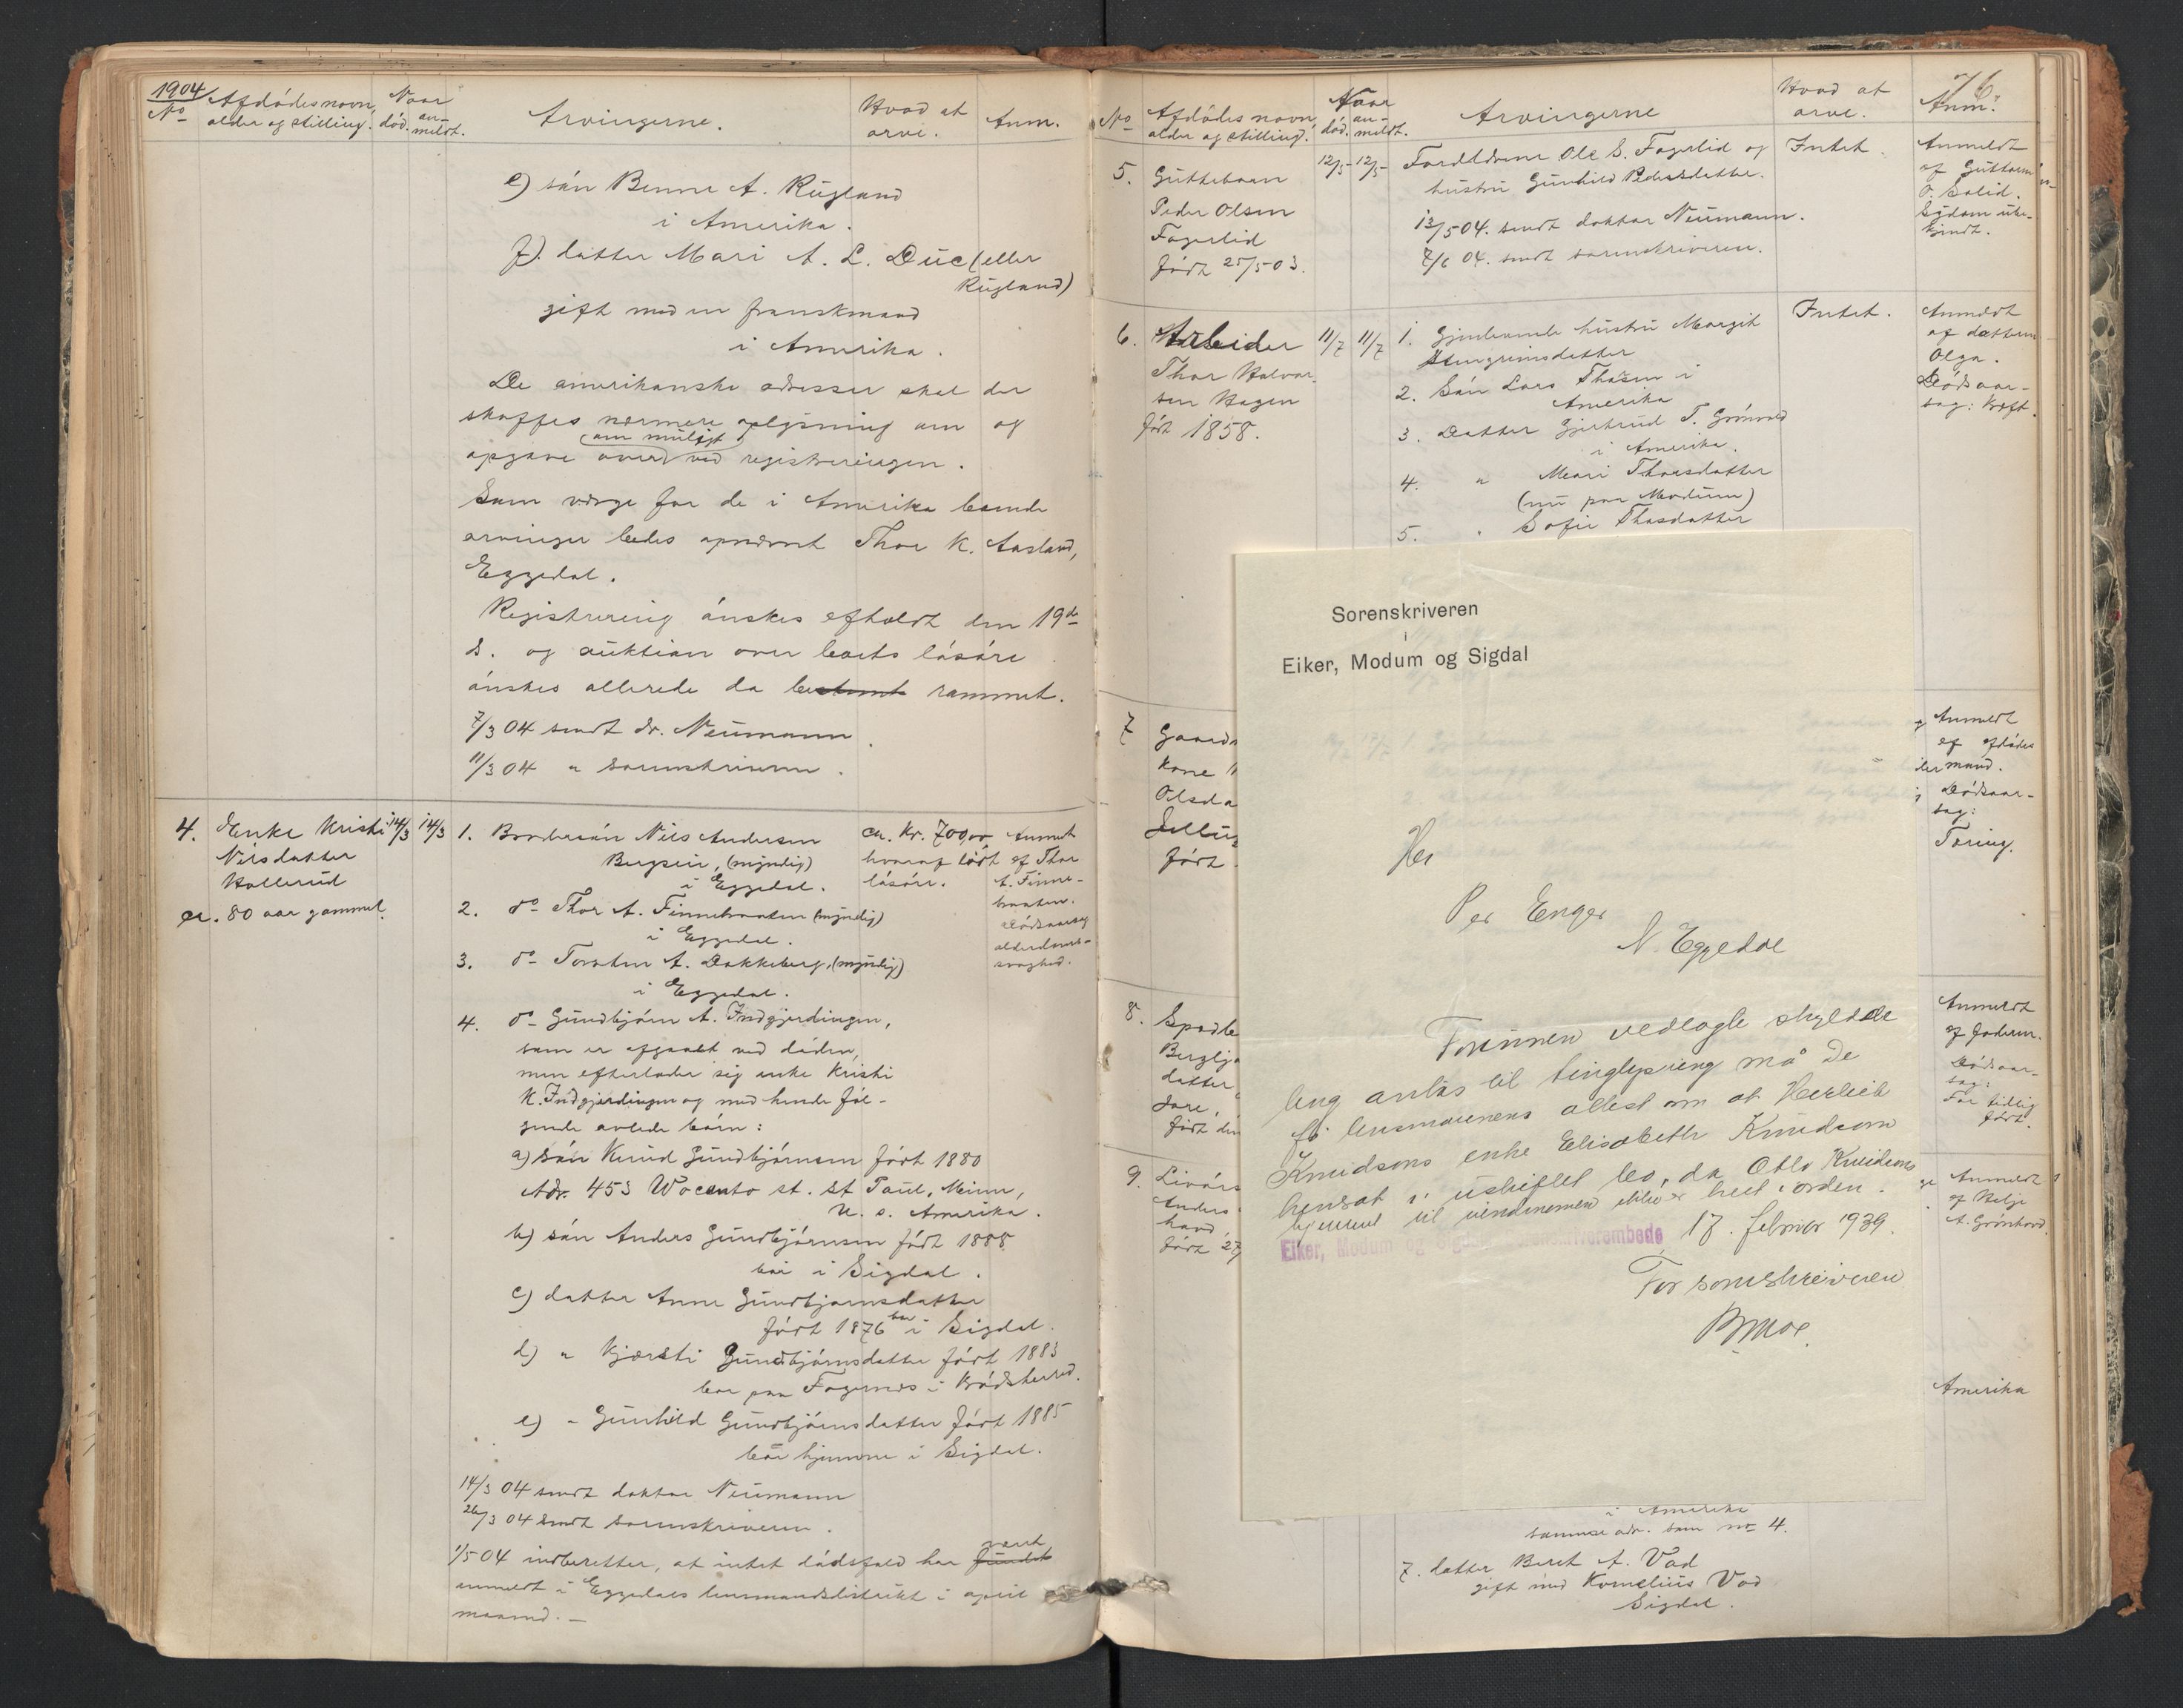 1904
No
Afdødes navn,
alder og stilling.
Naar
død.
an-
meldt.
Arvingerne.
Hvad at
arve.
Anm.
e) søn Benne A. Rugland
i Amerika.
f). datter Mari A. L. Due (eller
Rugland)
gift med en franskmand
i Amerika.
De amerikanske adresser skal der
skaffes nærmere oplysning om og
(om muligt)
opgave over ved registreringen.
Som værge for de i Amerika boende
arvinger bedes opnævnt Thor K. Aasland,
Eggedal.
Registrering ønskes afholdt den 19de
d. og auktion over boets løsøre
ønskes allerede da berammet.
7/3 04 sendt dr. Neumann.
11/3 04 " sorenskriveren.
4. Enke Kristi
Nilsdatter
Hollerud
ca. 80 aar gammel.
14/3 14/3
1. Brodersøn Nils Andersen
Bergsein, (myndig)
i Eggedal.
2. do Thor A. Finnebraaten (myndig)
i Eggedal.
3. do Torsten A. Dokkeberg, (myndig)
i Eggedal.
4. do Gundbjørn A. Indgjerdingen,
som er afgaaet ved døden,
men efterlader sig enke Kristi
K. Indgjerdingen og med hende føl-
gende avlede børn:
a) Søn Knud Gundbjørnsen født 1880
Adr. 453 Wocento st. St Paul, Minn,
U. S. Amerika.
b) søn Anders Gundbjørnsen født 1888
bor i Sigdal.
c) datter Anne Gundbjørnsdatter
født 1876 bor i Sigdal.
d) " Kjersti Gundbjørnsdatter født 1883
bor paa Fagernes i Krødsherred.
e) " Gunhild Gundbjørnsdatter født 1885
bor hjemme i Sigdal.
ca. Kr. 700,00
hvoraf
løsøre.
Anmeldt
af Thor
A. Finne-
braaten.
Dødsaarsag
alderdoms-
svaghed.
14/3 04 sendt doktor Neumann
26/3 04 sendt sorenskriveren.
1/5 04 indberettes, at intet dødsfald har været
anmeldt i Eggedals lensmandsdistrikt i april
maaned. —
76
No
Afdødes navn,
alder og stilling.
Naar
død.
an-
meldt.
Arvingerne
Hvad at
arve.
Anm.
5. Guttebarn
Peder Olsen
Fagerlid
født 25/5 03.
12/5 12/5
Forældrene Ole S. Fagerlid og
hustru Gunhild Pedersdatter.
13/5 04. sendt doktor Neumann.
7/6 04. sendt sorenskriveren.
Intet.
Anmeldt
af Guttorm
O. Solid.
Sygdom ube-
kjendt.
6. Arbeider
Thor Halvor-
sen Hagen
født 1858.
11/7 11/7
1. Gjenlevende hustru Margit
Stengrimsdatter
2. Søn Lars Thorsen i
Amerika
3. Datter Gjertrud T. Grønvold
i Amerika.
4. " Mari Thorsdatter
(nu paa Modum)
5. " Sofie Thorsdatter
Intet.
Anmeldt
af datteren
Olga.
Dødsaar-
sag: Kræft.
7
Gaard
Kone
Olsda
født
Anmeldt
af afdødes
mand.
Dødsaar-
sag:
Tæring.
8.
datter
født den
Anmeldt
af faderen.
Dødsaar-
sag:
For tidlig
født.
9.
Anders
født 27
Anmeldt
af Helge
A. Grønhovd.
Amerika
Sorenskriveren
i
Eiker, Modum og Sigdal
Her
Per Enger
N. Eggedal
Forinnen vedlagte skyldde
ling antas til tinglysing må De
få lensmannens attest om at Herleik
Knudsons enke Elisabeth Knudson
hensat i uskiftet bo, da Otto Knudsons
hjemmel til eiendommen ikke er helt i orden.
Eiker, Modum og Sigdal sorenskriverembede 17. februar 1939.
For sorenskriveren
i Amerika
samme adr. som no 4.
7. datter Berit A. Vad
gift med Kornelius Vad
Sigdal.